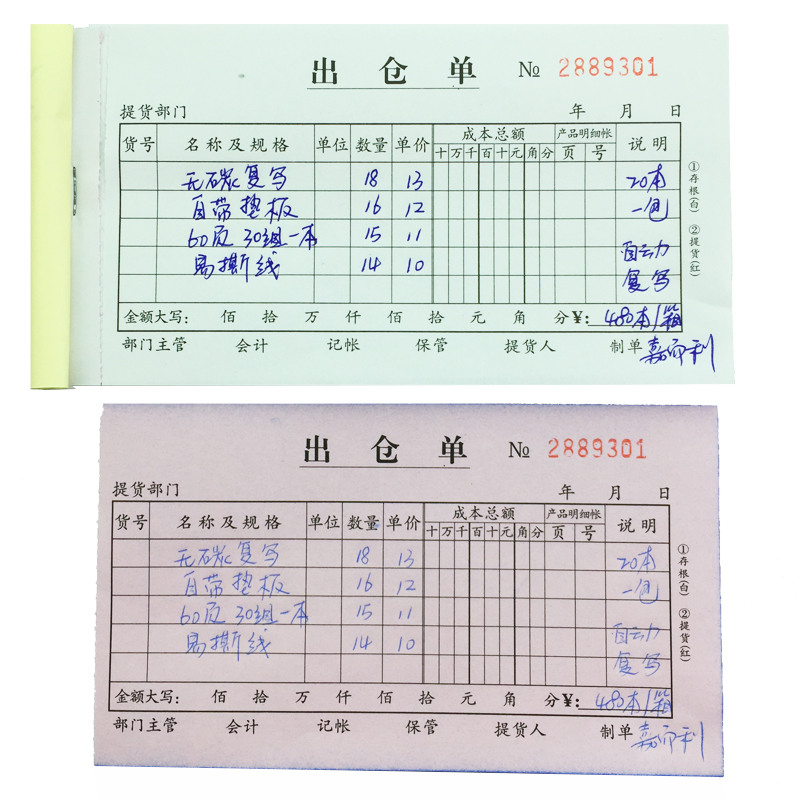 出仓单 № 2889301
提货部门 年 月 日
货号 名称及规格 单位 数量 单价 成本总额 产品明细帐 说明
十 万 千 百 十 元 角 分 页 号
无碳复写 18 13 20本
自带垫板 16 12 一包
60页 30组一本 15 11
易撕线 14 10 自动力
复写
金额大写: 佰 拾 万 仟 佰 拾 元 角 分¥: 480本/箱
部门主管 会计 记帐 保管 提货人 制单 嘉而利
①存根(白) ②提货(红)
出仓单 № 2889301
提货部门 年 月 日
货号 名称及规格 单位 数量 单价 成本总额 产品明细帐 说明
十 万 千 百 十 元 角 分 页 号
无碳复写 18 13 20本
自带垫板 16 12 一包
60页 30组一本 15 11
易撕线 14 10 自动力
复写
金额大写: 佰 拾 万 仟 佰 拾 元 角 分¥: 480本/箱
部门主管 会计 记帐 保管 提货人 制单 嘉而利
①存根(白) ②提货(红)